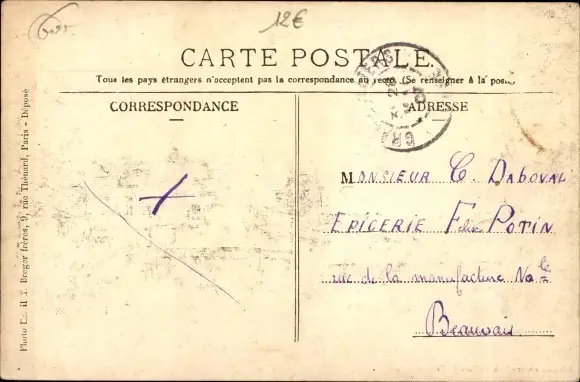 12€
CARTE POSTALE.
Tous les pays étrangers n'acceptent pas la correspondance au recto. (Se renseigner à la poste)
CORRESPONDANCE
ADRESSE
MONSIEUR C. DABOVAL
EPICERIE Felix POTIN
rue de la manufacture Nale
Beauvais
Photo Breger frères, 9, rue Thénard, Paris - Déposé